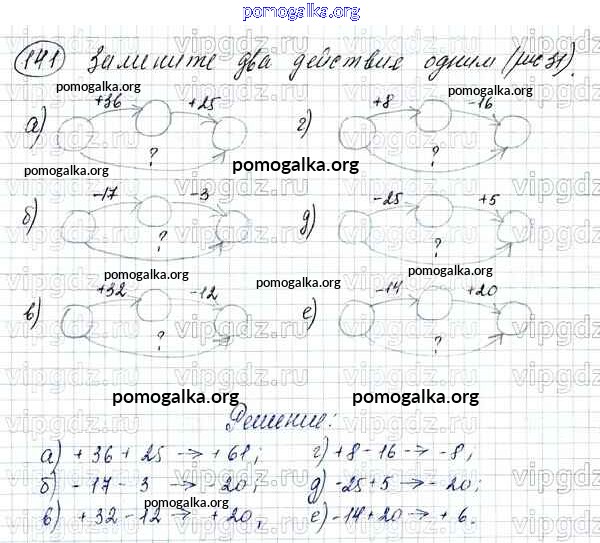 pomogalka.org
141 Замените два действия одним (рис 31).
pomogalka.org
pomogalka.org
а) +36 +25 ?
г) +8 -16 ?
pomogalka.org
pomogalka.org
б) -17 -3 ?
д) -25 +5 ?
pomogalka.org
pomogalka.org
в) +32 -12 ?
е) -14 +20 ?
pomogalka.org
pomogalka.org
Решение:
а) +36+25 → +61; г) +8-16 → -8;
б) -17-3 → -20; д) -25+5 → -20;
pomogalka.org
в) +32-12 → +20, е) -14+20 → +6.
vipgdz.ru